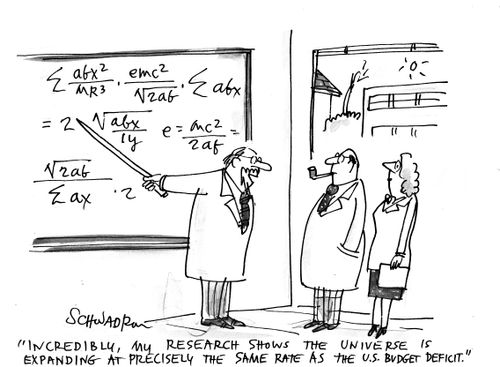 Σ abx²/MR³ · emc²/√2ab · Σ abx
= 2 √abx/1y e = mc²/2af =
√2ab/Σ ax · 2
SCHWADRON
"INCREDIBLY, MY RESEARCH SHOWS THE UNIVERSE IS
EXPANDING AT PRECISELY THE SAME RATE AS THE U.S. BUDGET DEFICIT."